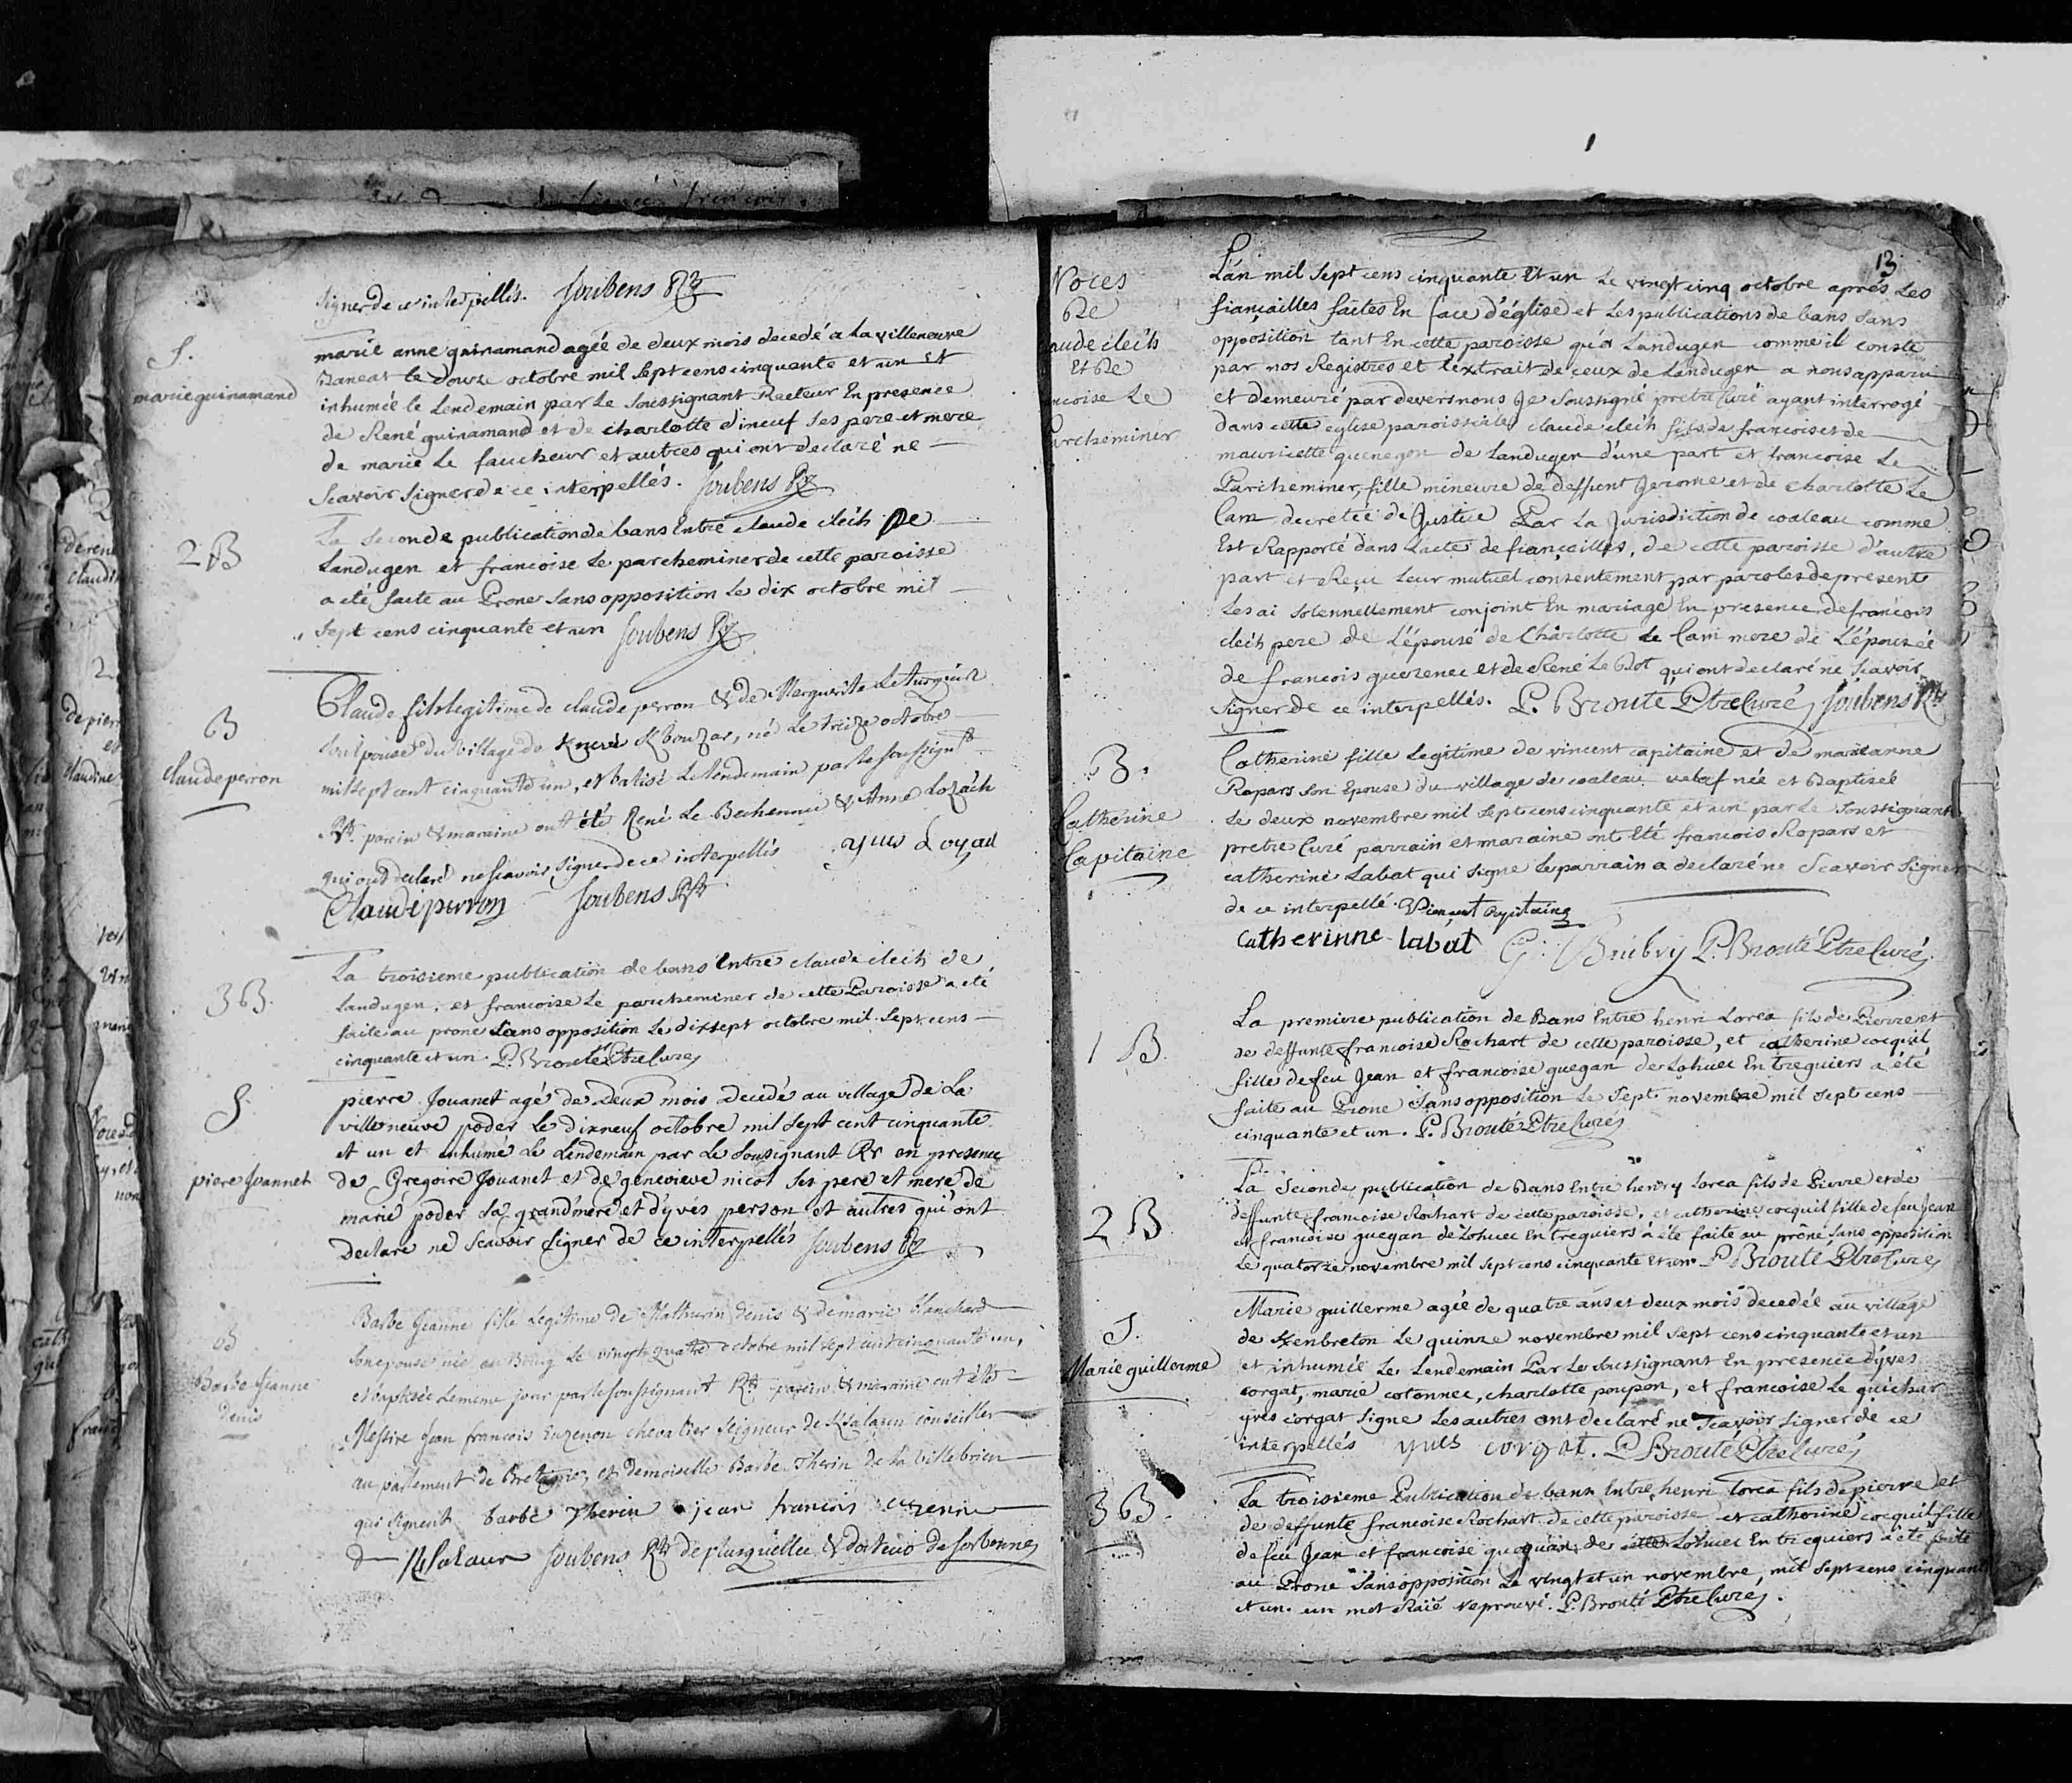 signer de ce interpellés. Joubens Rr
S.
marie guinamand
marie anne guinamand agée de deux mois decedé a la villeneuve
Baneat le douze octobre mil sept cens cinquante et un et
inhumée le Lendemain par Le Soussignant Recteur En presence
de René guinamand et de charlotte dineuf Ses pere et mere
de marie Le faucheur et autres qui ont declaré ne
Scavoir Signer de ce interpellés. Joubens Rr
2 B
La seconde publication de bans Entre claude clech De
Landugen et francoise Le parcheminer de cette paroisse
a été faite au Prone Sans opposition Le dix octobre mil
Sept cens cinquante et un Joubens Rr
B
claude perron
Claude fils legitime de claude perron & de Marguerite Leturgeur
son epouse du village de Kbouzar, né Le treize octobre
mil sept cent cinquante un, et batisé Le lendemain par le soussigné
Rr. parein & maraine ont été René Le Bechennec & Anne Lozach
qui ont declaré ne scavoir signer de ce interpellés yves Loyad
Claude perron Joubens Rr
3 B.
La troisieme publication de bans Entre claude clech de
Landugen, et francoise Le parcheminer de cette Paroisse a eté
faite au prone Sans opposition Le dixsept octobre mil Sept cens
cinquante et un. P. Brouté Ptre Curé
S
piere Joannet
pierre Jouanet agé de Deux mois Decedé au village De La
ville neuve poder le dixneuf octobre mil Sept cent cinquante
et un et inhumé Le Lendemain par Le Sousignant Rr en presence
de Gregoire Jouanet et de genevieve nicol Ses pere et mere de
marie poder Sa grandmere et d'yves person et autres qui ont
Declaré ne Scavoir signer de ce interpellés Joubens Rr
B
Barbe Jeanne
denis
Barbe Jeanne fille Legitime de Mathurin denis & de marie Blanchard
son epouse née au Bourg Le vingt quatre octobre mil sept cent cinquante un,
et baptisée Le meme jour par le soussignant Rr parein & maraine ont été
Messire Jean francois Euzenou chevalier Seigneur de Ksalaun conseiller
au parlement de Bretagne, et demoiselle Barbe Therin de La villebrien
qui signent barbe Therin jean francois euzenou
de Ksalaun Joubens Rr de plusquellec & docteur de Sorbonne
13
Noces
De
aude clech
Et De
ncoise Le
archeminer
L'an mil Sept cens cinquante Et un Le vingt cinq octobre aprés Les
fiançailles faites En face d'église et Les publications de bans Sans
opposition tant En cette paroisse qu'a Landugen comme il conste
par nos Registres et L'extrait de ceux de Landugen a nous apparu
et demeuré par devers nous Je Soussigné pretre Curé ayant interrogé
dans cette eglise paroissiale claude clech fils de francois et de
mauricette quenegon de Landugen d'une part et francoise Le
Parcheminer, fille mineure de deffunt Jerome et de charlotte Le
Cam decretée de Justice Par La Jurisdiction de coaleau comme
Est Rapporté dans L'acte de fiançailles, de cette paroisse d'autre
part et Reçu Leur mutuel consentement par paroles de present
Les ai Solennellement conjoint En mariage En presence de francois
clech pere de L'épousé de Charlotte Le Cam mere de L'épousée
de francois guezenec et de René Le Bot qui ont declaré ne Scavoir
signer de ce interpellés. P. Brouté Ptre Curé Joubens Rr
B.
Catherine
Capitaine
Catherine fille Legitime de vincent capitaine et de marieanne
Ropars Son Epouse du village de coaleau née et Baptisée
Le deux novembre mil Sept cens cinquante et un par Le Soussignant
pretre Curé parrain et maraine ont Eté francois Ropars et
catherine Labat qui Signe Le parrain a declaré ne Scavoir Signer
de ce interpellé. Vincent Capitaine
Catherinne labat G. Briubry P. Brouté Ptre Curé
1 B.
La premiere publication de Bans Entre henri Lorea fils de Pierre et
de deffunte francoise Rochart de cette paroisse, et catherine cocquil
fille de feu Jean et francoise guegan de Lohuec En treguiers a été
faite au Prone Sans opposition Le Sept novembre mil Sept cens
cinquante et un. P. Brouté Ptre Curé
2 B.
La Seconde publication de Bans Entre henry Lorea fils de Pierre et de
deffunte francoise Rochart de cette paroisse, et catherine cocquil fille de feu Jean
et francoise guegan de Lohuec En treguiers a été faite au prône Sans opposition
Le quatorze novembre mil Sept cens cinquante et un. P Brouté Ptre Curé
S.
Marie guillerme
Marie guillerme agée de quatre ans et deux mois decedée au village
de Kenbreton Le quinze novembre mil Sept cens cinquante et un
et inhumée Le Lendemain Par Le Soussignant En presence d'yves
corgat, marie cotonnec, charlotte poupon, et francoise Le guichar
yves corgat Signe Les autres ont declaré ne Scavoir signer de ce
interpellés yves corgat. P Brouté Ptre Curé
3 B.
La troisieme Publication de bans Entre henri Lorea fils de pierre et
de deffunte francoise Rochart de cette paroisse et catherine cocquil fille
de feu Jean et francoise guegan de Lohuec En treguiers a été faite
au Prone Sans opposition Le vingt et un novembre, mil Sept cens cinquante
et un. un mot Raié reprouvé. P. Brouté Ptre Curé.